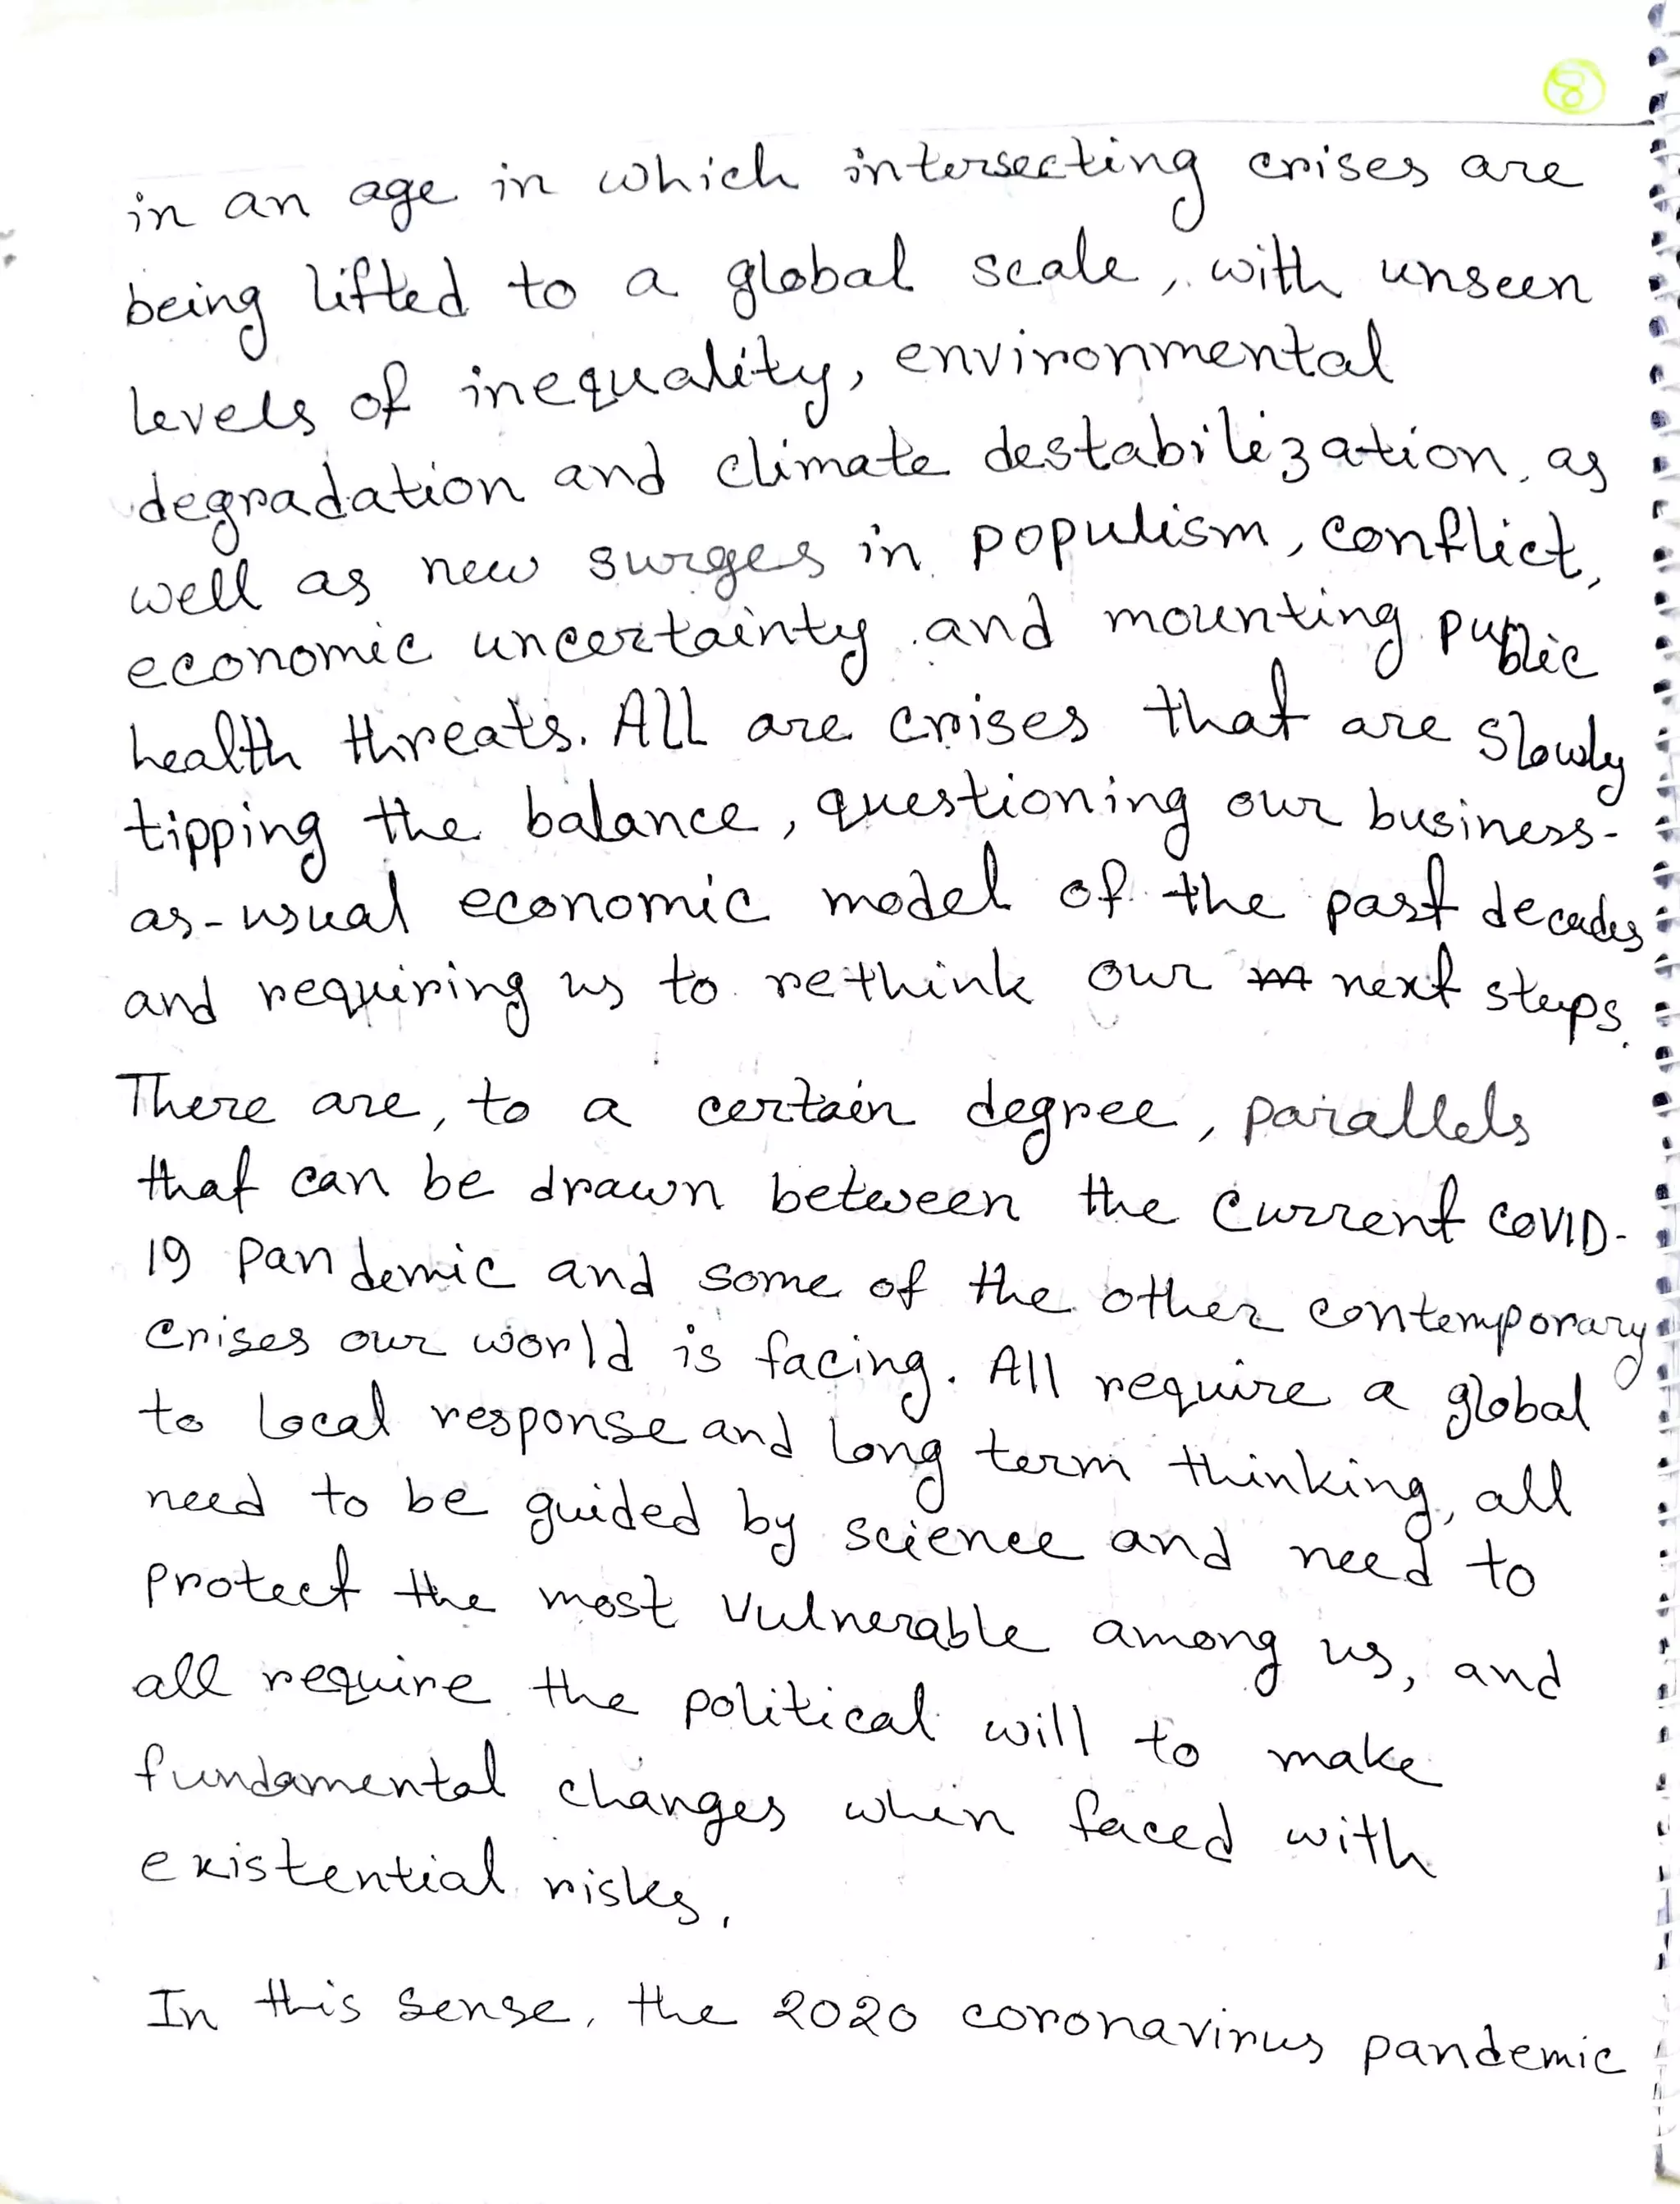 8
in an age in which intersecting crises are
being lifted to a global scale, with unseen
levels of inequality, environmental
degradation and climate destabilization, as
well as new surges in populism, conflict,
economic uncertainty and mounting public
health threats. All are crises that are slowly
tipping the balance, questioning our business-
as-usual economic model of the past decades
and requiring us to rethink our next steps.
There are, to a certain degree, parallels
that can be drawn between the current COVID-
19 pandemic and some of the other contemporary
crises our world is facing. All require a global
to local response and long term thinking, all
need to be guided by science and need to
protect the most vulnerable among us, and
all require the political will to make
fundamental changes when faced with
existential risks.
In this sense, the 2020 coronavirus pandemic